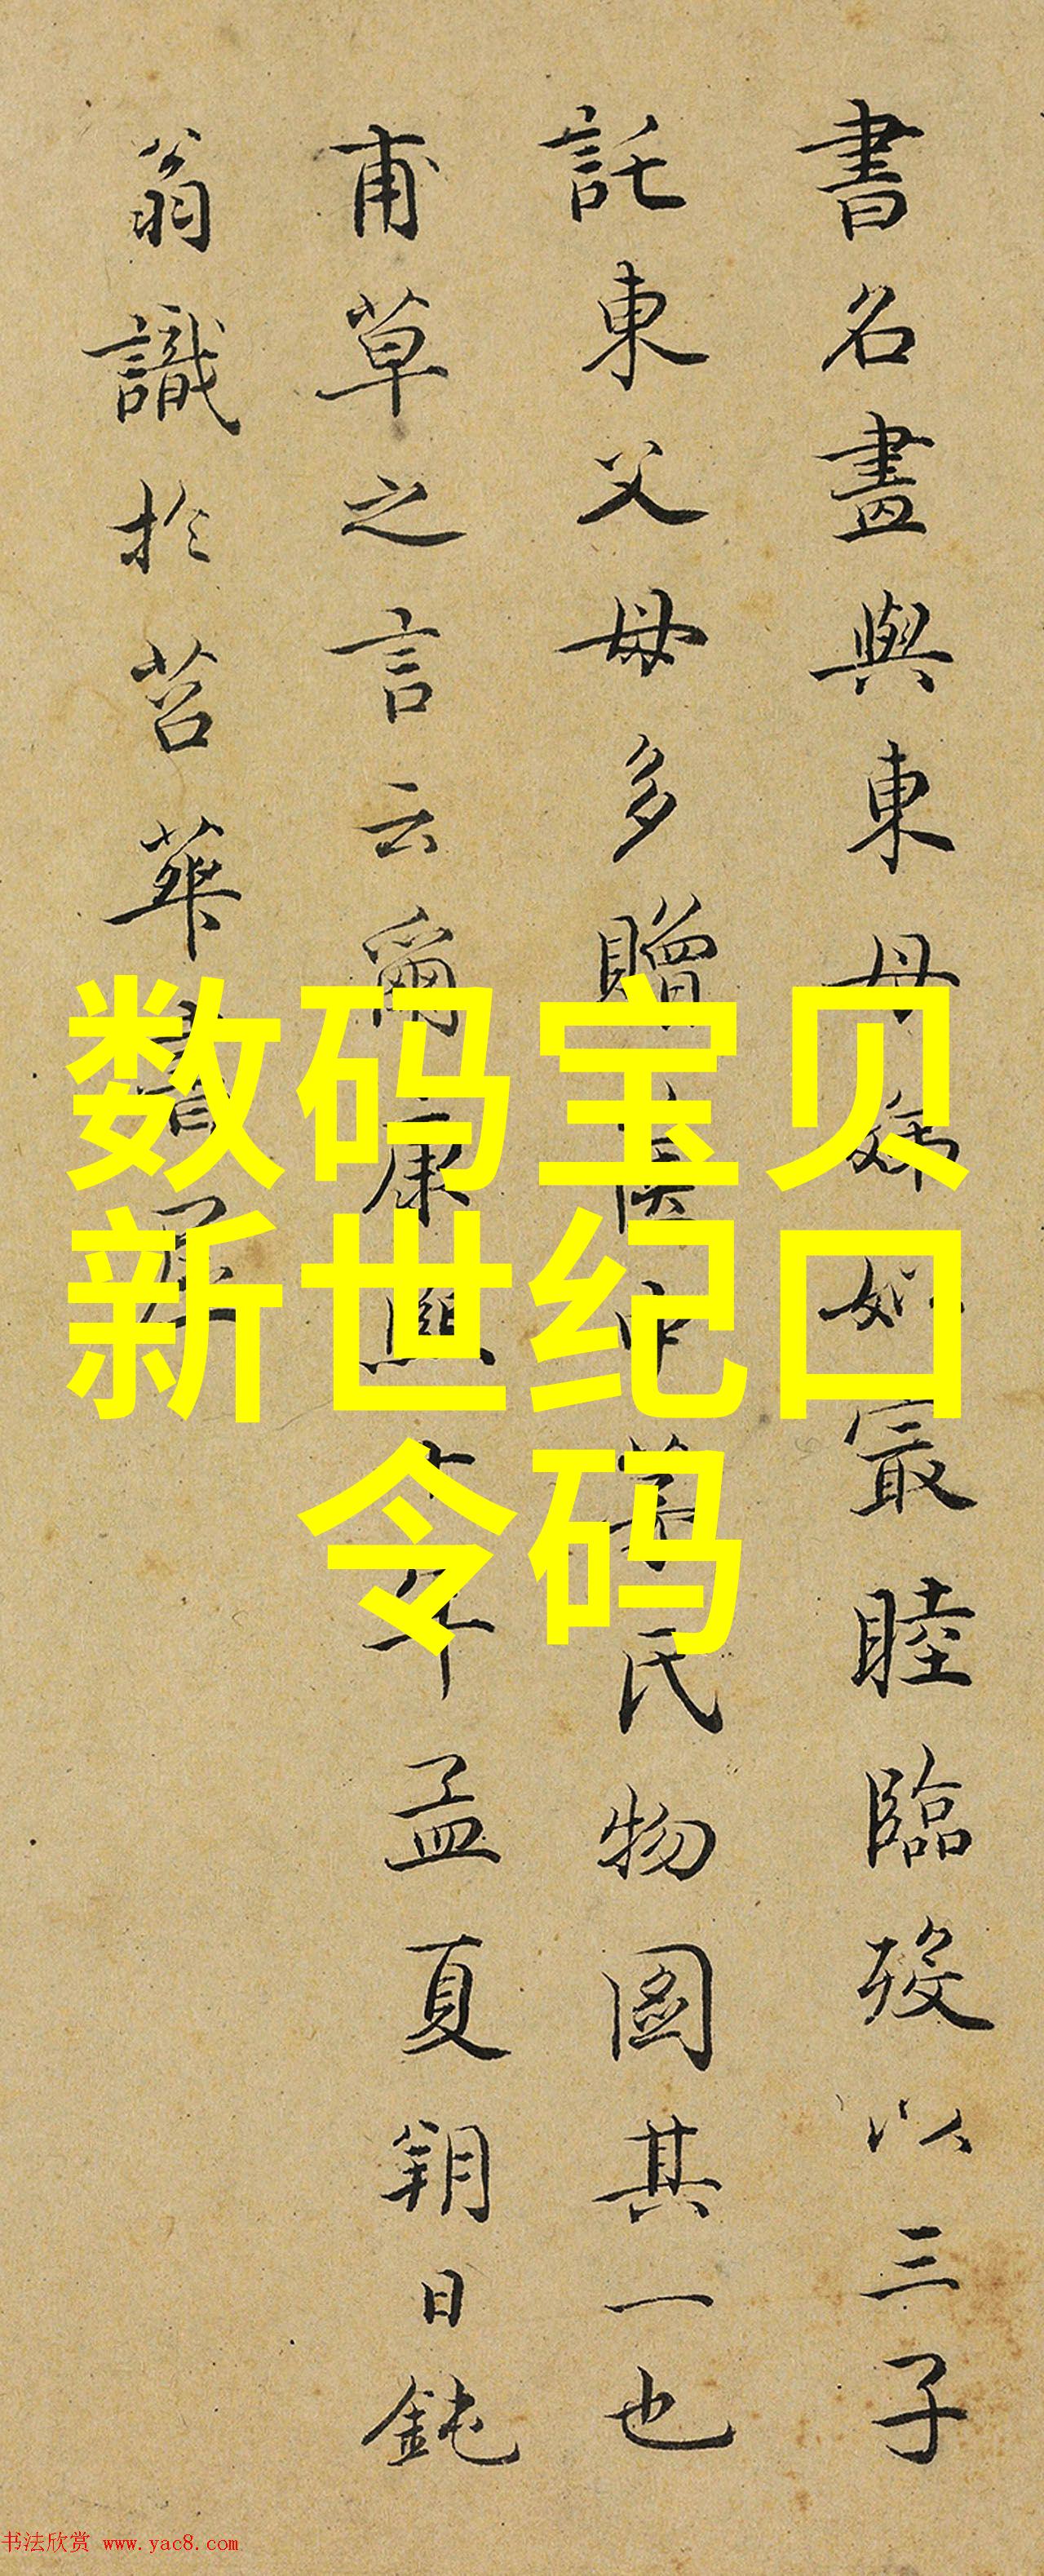 書名畫與東母姊妹冣睦臨歿以三子
託東父母多贈
氏物圖其一也
甫草之言云爾康熙
年孟夏朔日鈍
翁識於苕華書屋
数码宝贝
新世纪口
令码
书法欣赏 www.yac8.com